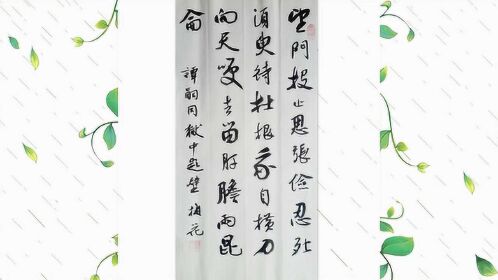 望门投止思張儉忍死
須臾待杜根我自横刀
向天咲去留肝膽兩昆
侖
譚嗣同獄中題壁 梅花